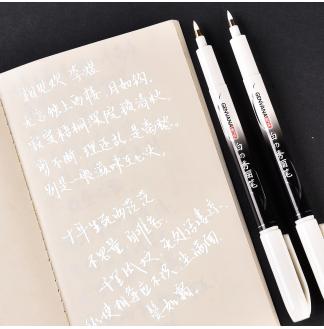 相见欢 李煜
无言独上西楼,月如钩。
寂寞梧桐深院锁清秋
剪不断,理还乱,是离愁。
别是一般滋味在心头。
十年生死两茫茫
不思量,自难忘。
千里孤坟,无处话凄凉。
纵使相逢应不识,尘满面,
鬓如霜。
GENVANA
白の秀丽笔
GENVANA
白の秀丽笔